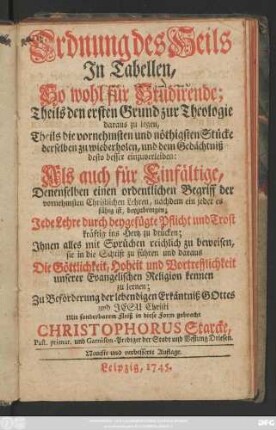 Ordnung des Heils
In Tabellen,
So wohl für Studirende;
Theils den ersten Grund zur Theologie
daraus zu legen,
Theils die vornehmsten und nöthigsten Stücke
derselben zu wiederholen, und dem Gedächtniß
desto besser einzuverleiben:
Als auch für Einfältige,
Denenselben einen ordentlichen Begriff der
vornehmsten Christlichen Lehren, nachdem ein jeder es
fähig ist, beyzubringen;
Jede Lehre durch beygefügte Pflicht und Trost
kräftig ins Hertz zu drücken;
Ihnen alles mit Sprüchen reichlich zu beweisen,
sie in die Schrift zu führen und daraus
Die Göttlichkeit, Hoheit und Vortrefflichkeit
unserer Evangelischen Religion kennen
zu lernen;
Zu Beförderung der lebendigen Erkäntniß GOttes
und JESU Christi
Mit sonderbarem Fleiß in diese Form gebracht
CHRISTOPHORUS Starcke,
Past. primar. und Garnison-Prediger der Stadt und Vestung Driesen.
Neunte und verbesserte Auflage.
Leipzig, 1745.